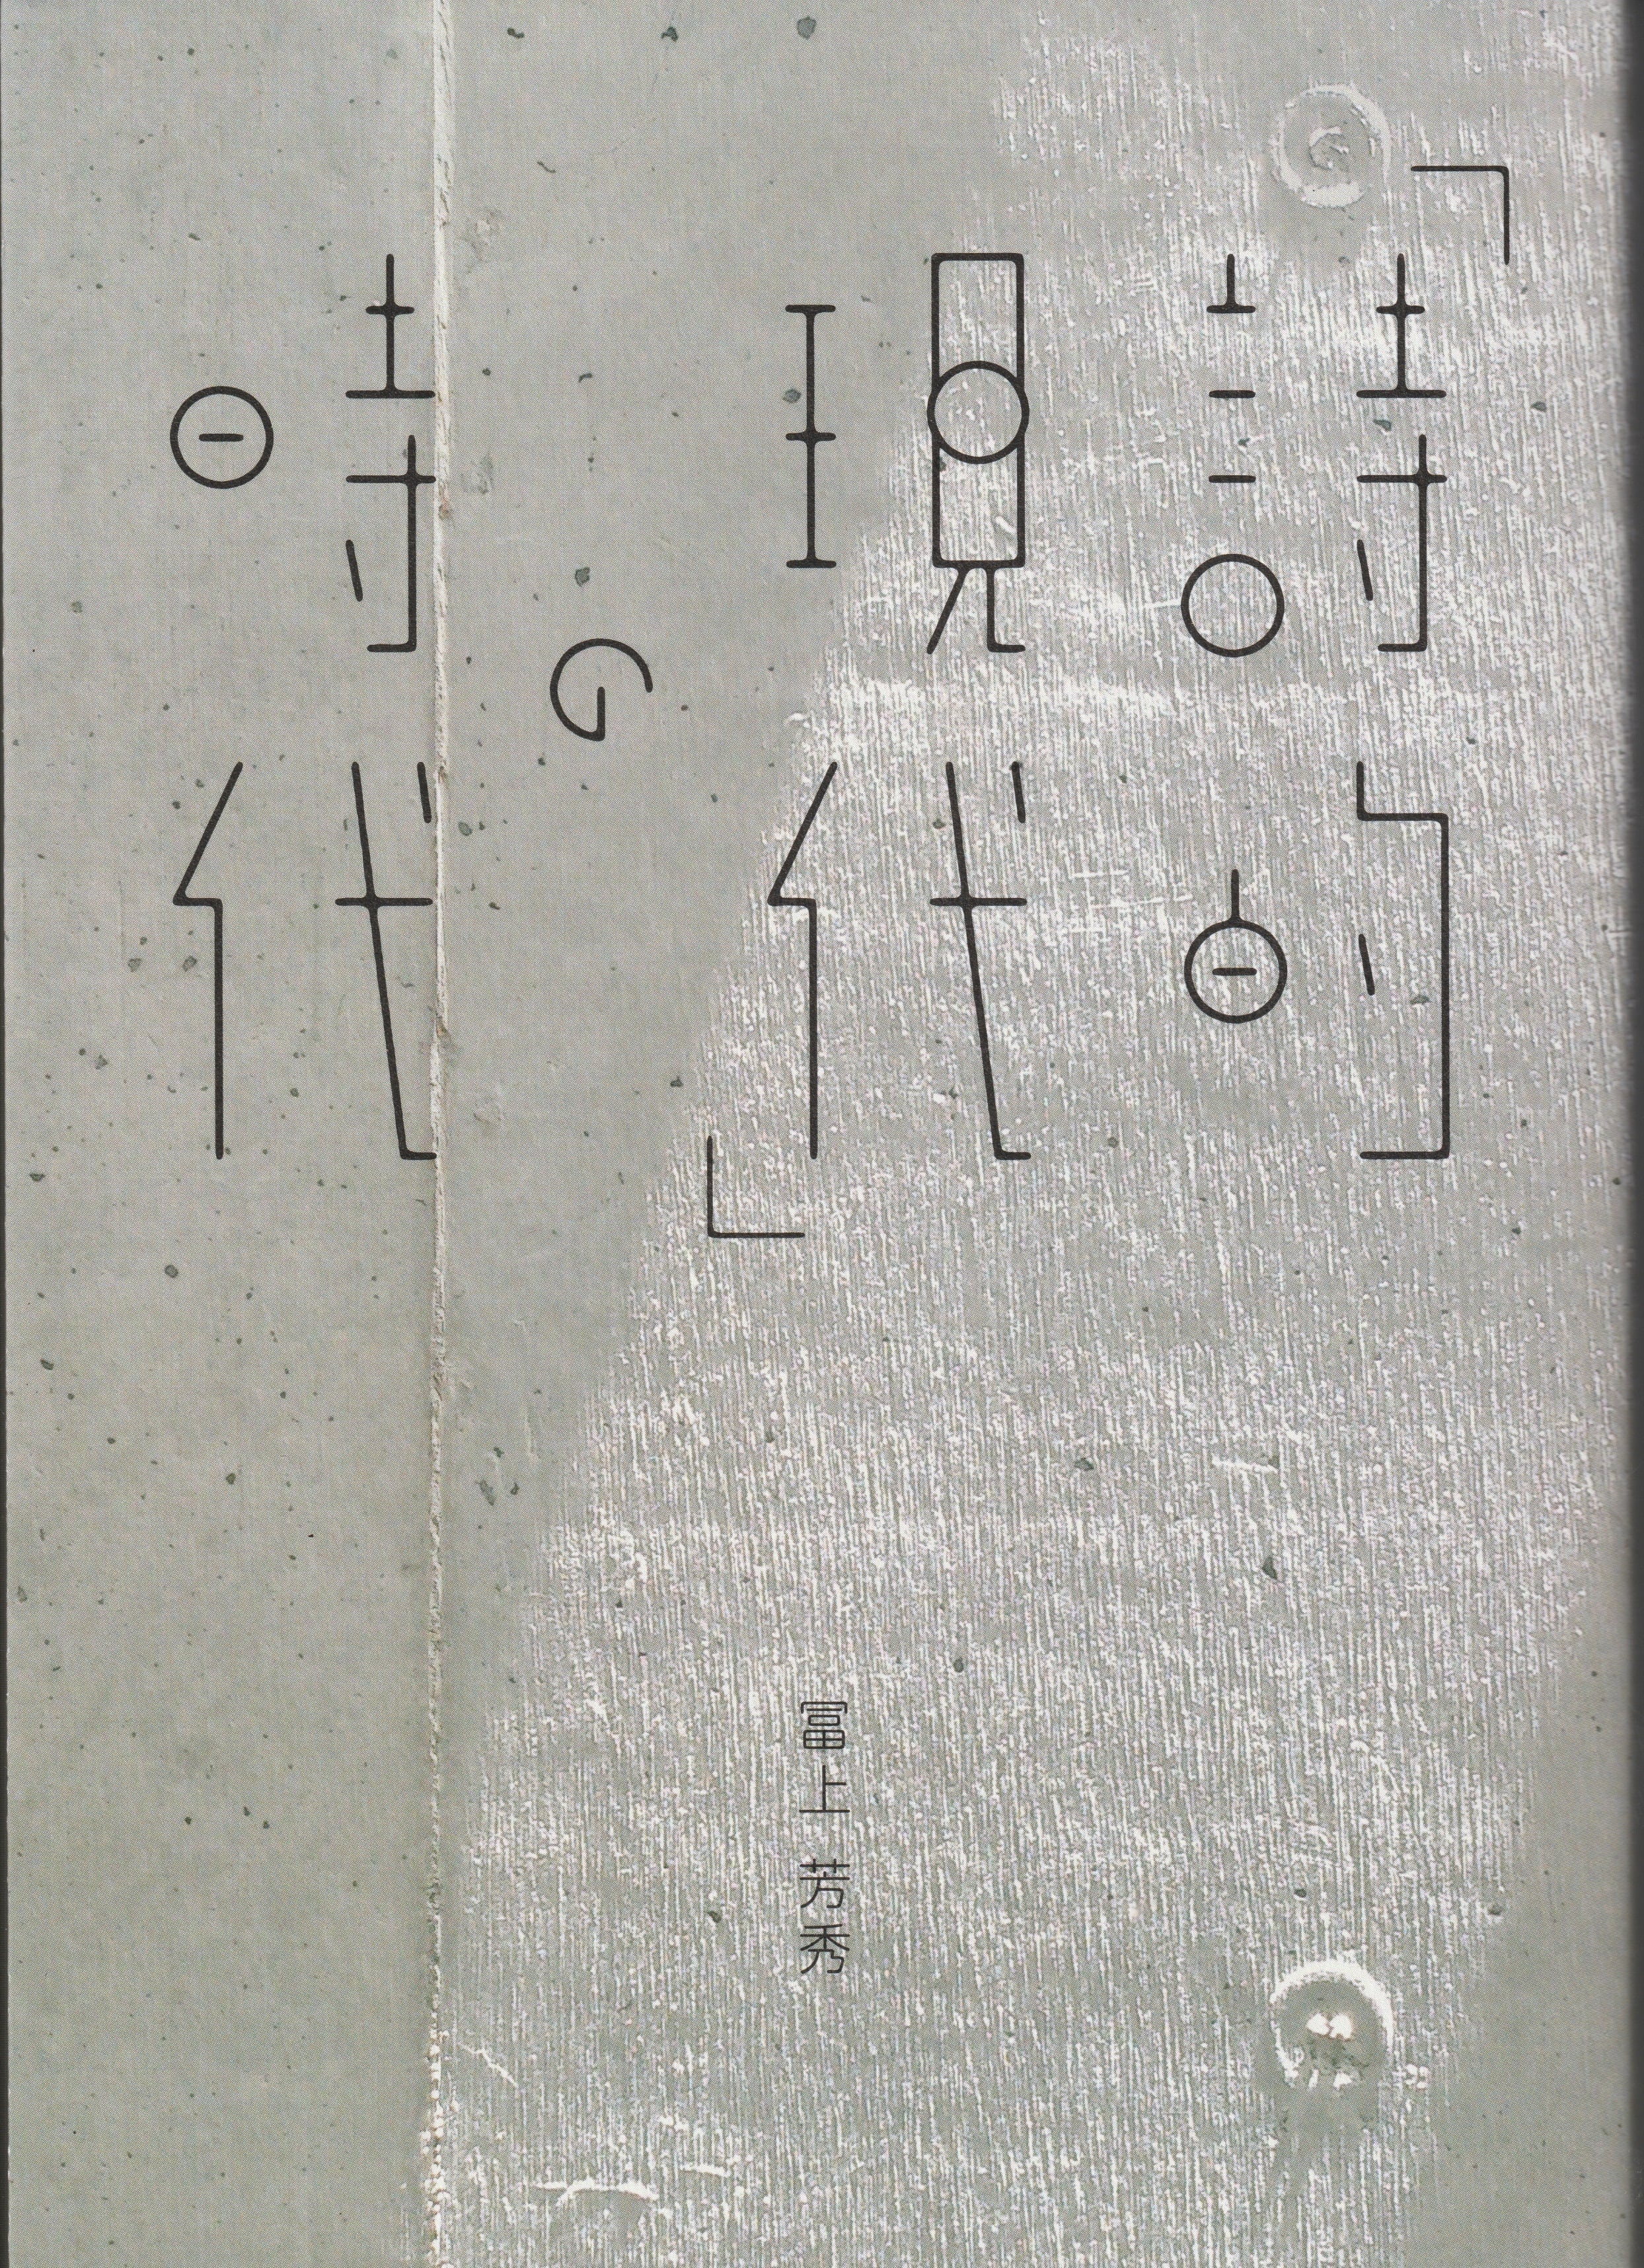 「詩的
現代」
の
時代
冨上 芳秀